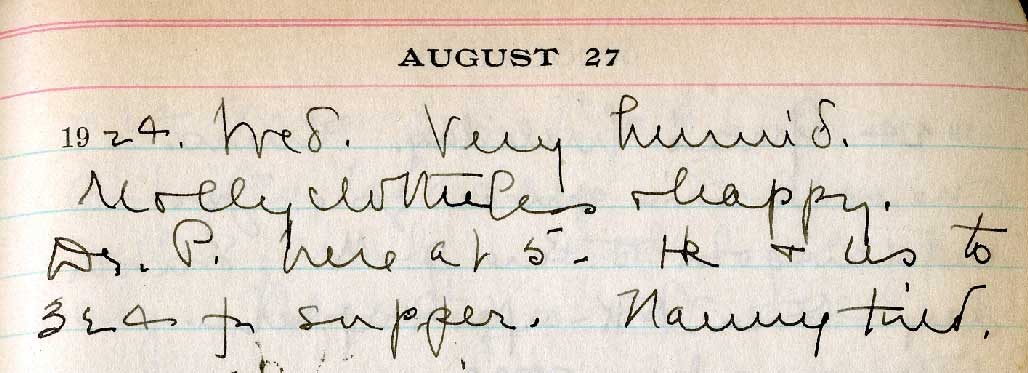 AUGUST 27
1924. Wed. Very humid.
Molly clothesless & happy.
Dr. P. here at 5- He & us to
324 for supper. Nanny tired.